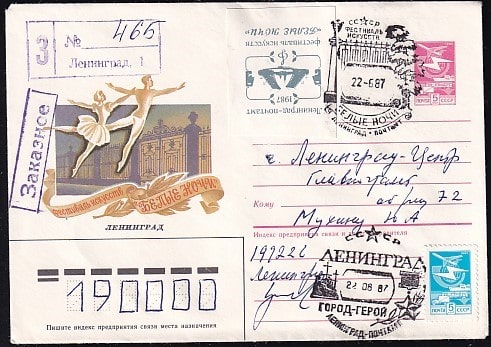 З
№ 465
Ленинград, 1
Заказное
Ленинград-почтамт
1987
фестиваль искусств
«БЕЛЫЕ НОЧИ»
СССР
ФЕСТИВАЛЬ ИСКУССТВ
22-6.87
БЕЛЫЕ НОЧИ
ЛЕНИНГРАД - ПОЧТАМТ
ПОЧТА СССР
5
Фестиваль искусств
БЕЛЫЕ НОЧИ
ЛЕНИНГРАД
190000
Пишите индекс предприятия связи места назначения
г. Ленинград-Центр
Главпочтамт
72
Кому
Мухину Н А
Индекс предприятия связи и адрес отправителя
Ленинград
СССР
ЛЕНИНГРАД
22.06.87
ГОРОД-ГЕРОЙ
ЛЕНИНГРАД-ПОЧТАМТ
5
ПОЧТА СССР